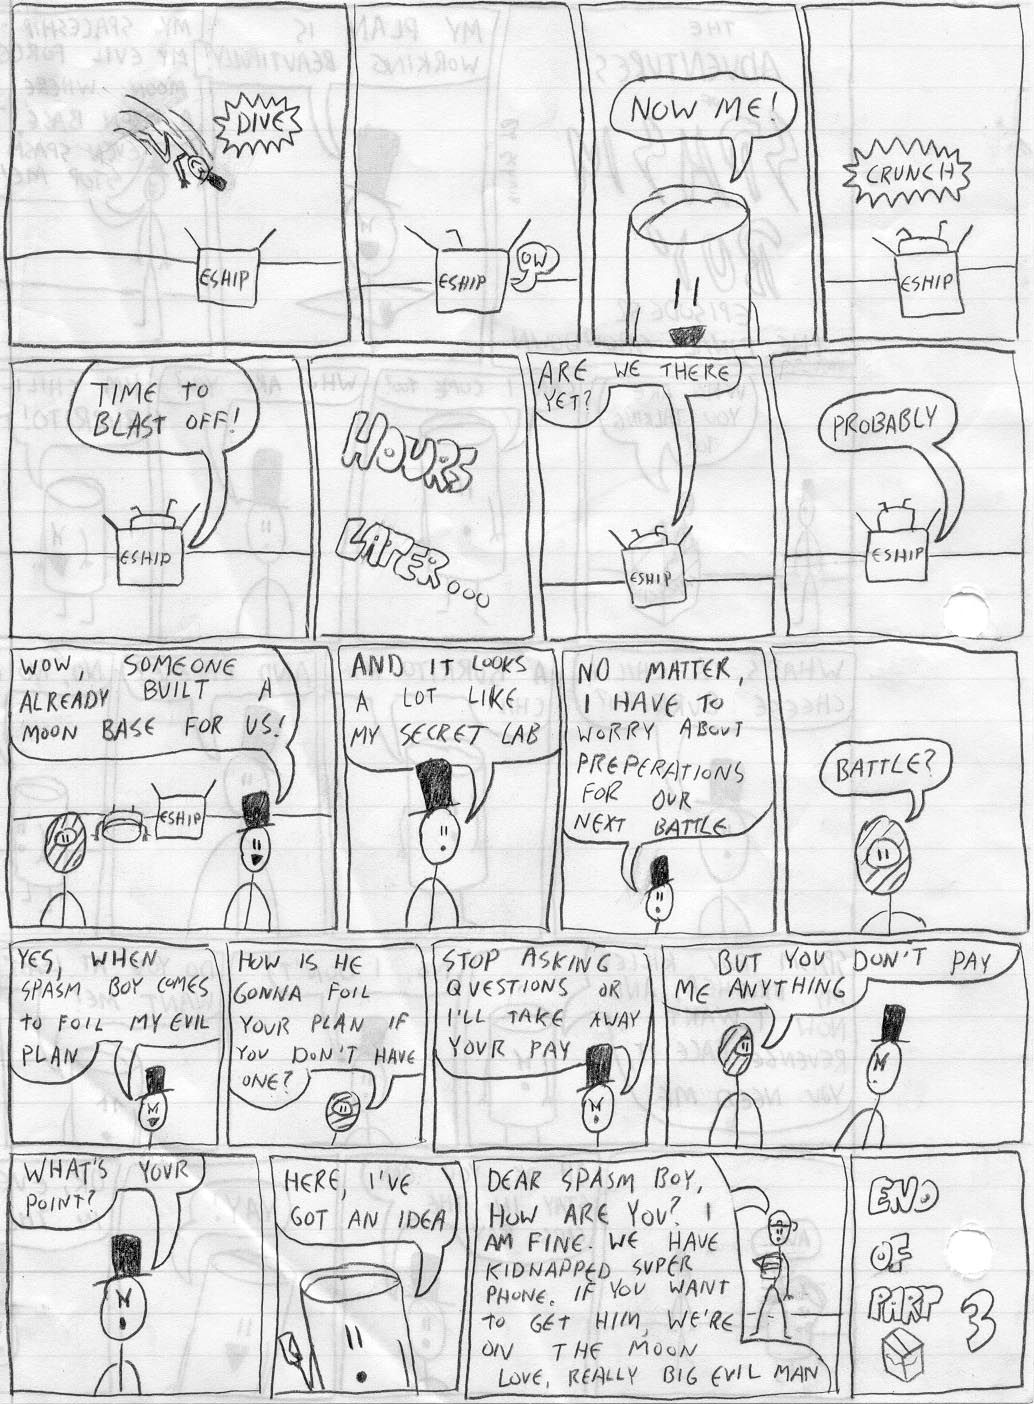 DIVE
ESHIP
ESHIP
OW
NOW ME!
CRUNCH
ESHIP
TIME TO
BLAST OFF!
ESHIP
HOURS
LATER...
ARE WE THERE
YET?
ESHIP
PROBABLY
ESHIP
WOW, SOMEONE
ALREADY BUILT A
MOON BASE FOR US!
ESHIP
AND IT LOOKS
A LOT LIKE
MY SECRET LAB
NO MATTER,
I HAVE TO
WORRY ABOUT
PREPERATIONS
FOR OUR
NEXT BATTLE
BATTLE?
YES, WHEN
SPASM BOY COMES
TO FOIL MY EVIL
PLAN
HOW IS HE
GONNA FOIL
YOUR PLAN IF
YOU DON'T HAVE
ONE?
STOP ASKING
QUESTIONS OR
I'LL TAKE AWAY
YOUR PAY
BUT YOU DON'T PAY
ME ANYTHING
WHAT'S YOUR
POINT?
HERE, I'VE
GOT AN IDEA
DEAR SPASM BOY,
HOW ARE YOU? I
AM FINE. WE HAVE
KIDNAPPED SUPER
PHONE. IF YOU WANT
TO GET HIM, WE'RE
ON THE MOON
LOVE, REALLY BIG EVIL MAN
END
OF
PART
3